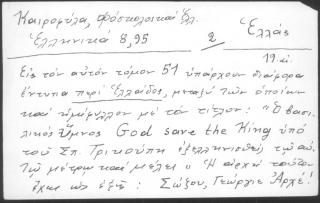 Καιρομύλα, Φάσκολοι καὶ Ἑλ. Ἑλλάς
Ἑλληνικά 8,95 2 19.αἰ.
Εἰς τὸν αὐτὸν τόμον 51 ὑπάρχουν διάφορα
ἔντυπα περὶ Ἑλλάδος, μεταξὺ τῶν ὁποίων
καὶ μὲ τὸν τίτλον: "Ὁ βασι-
λικὸς ὕμνος God save the King ὑπὸ
τοῦ Σπ. Τρικούπη ἐξελληνισθεὶς τῷ αὐ.
Τῷ μέτρῳ καὶ μέλει". Ἡ ἀρχὴ τούτου
ἔχει ὡς ἑξῆς: Σώζου, Γεώργιε Ἀρχέ!